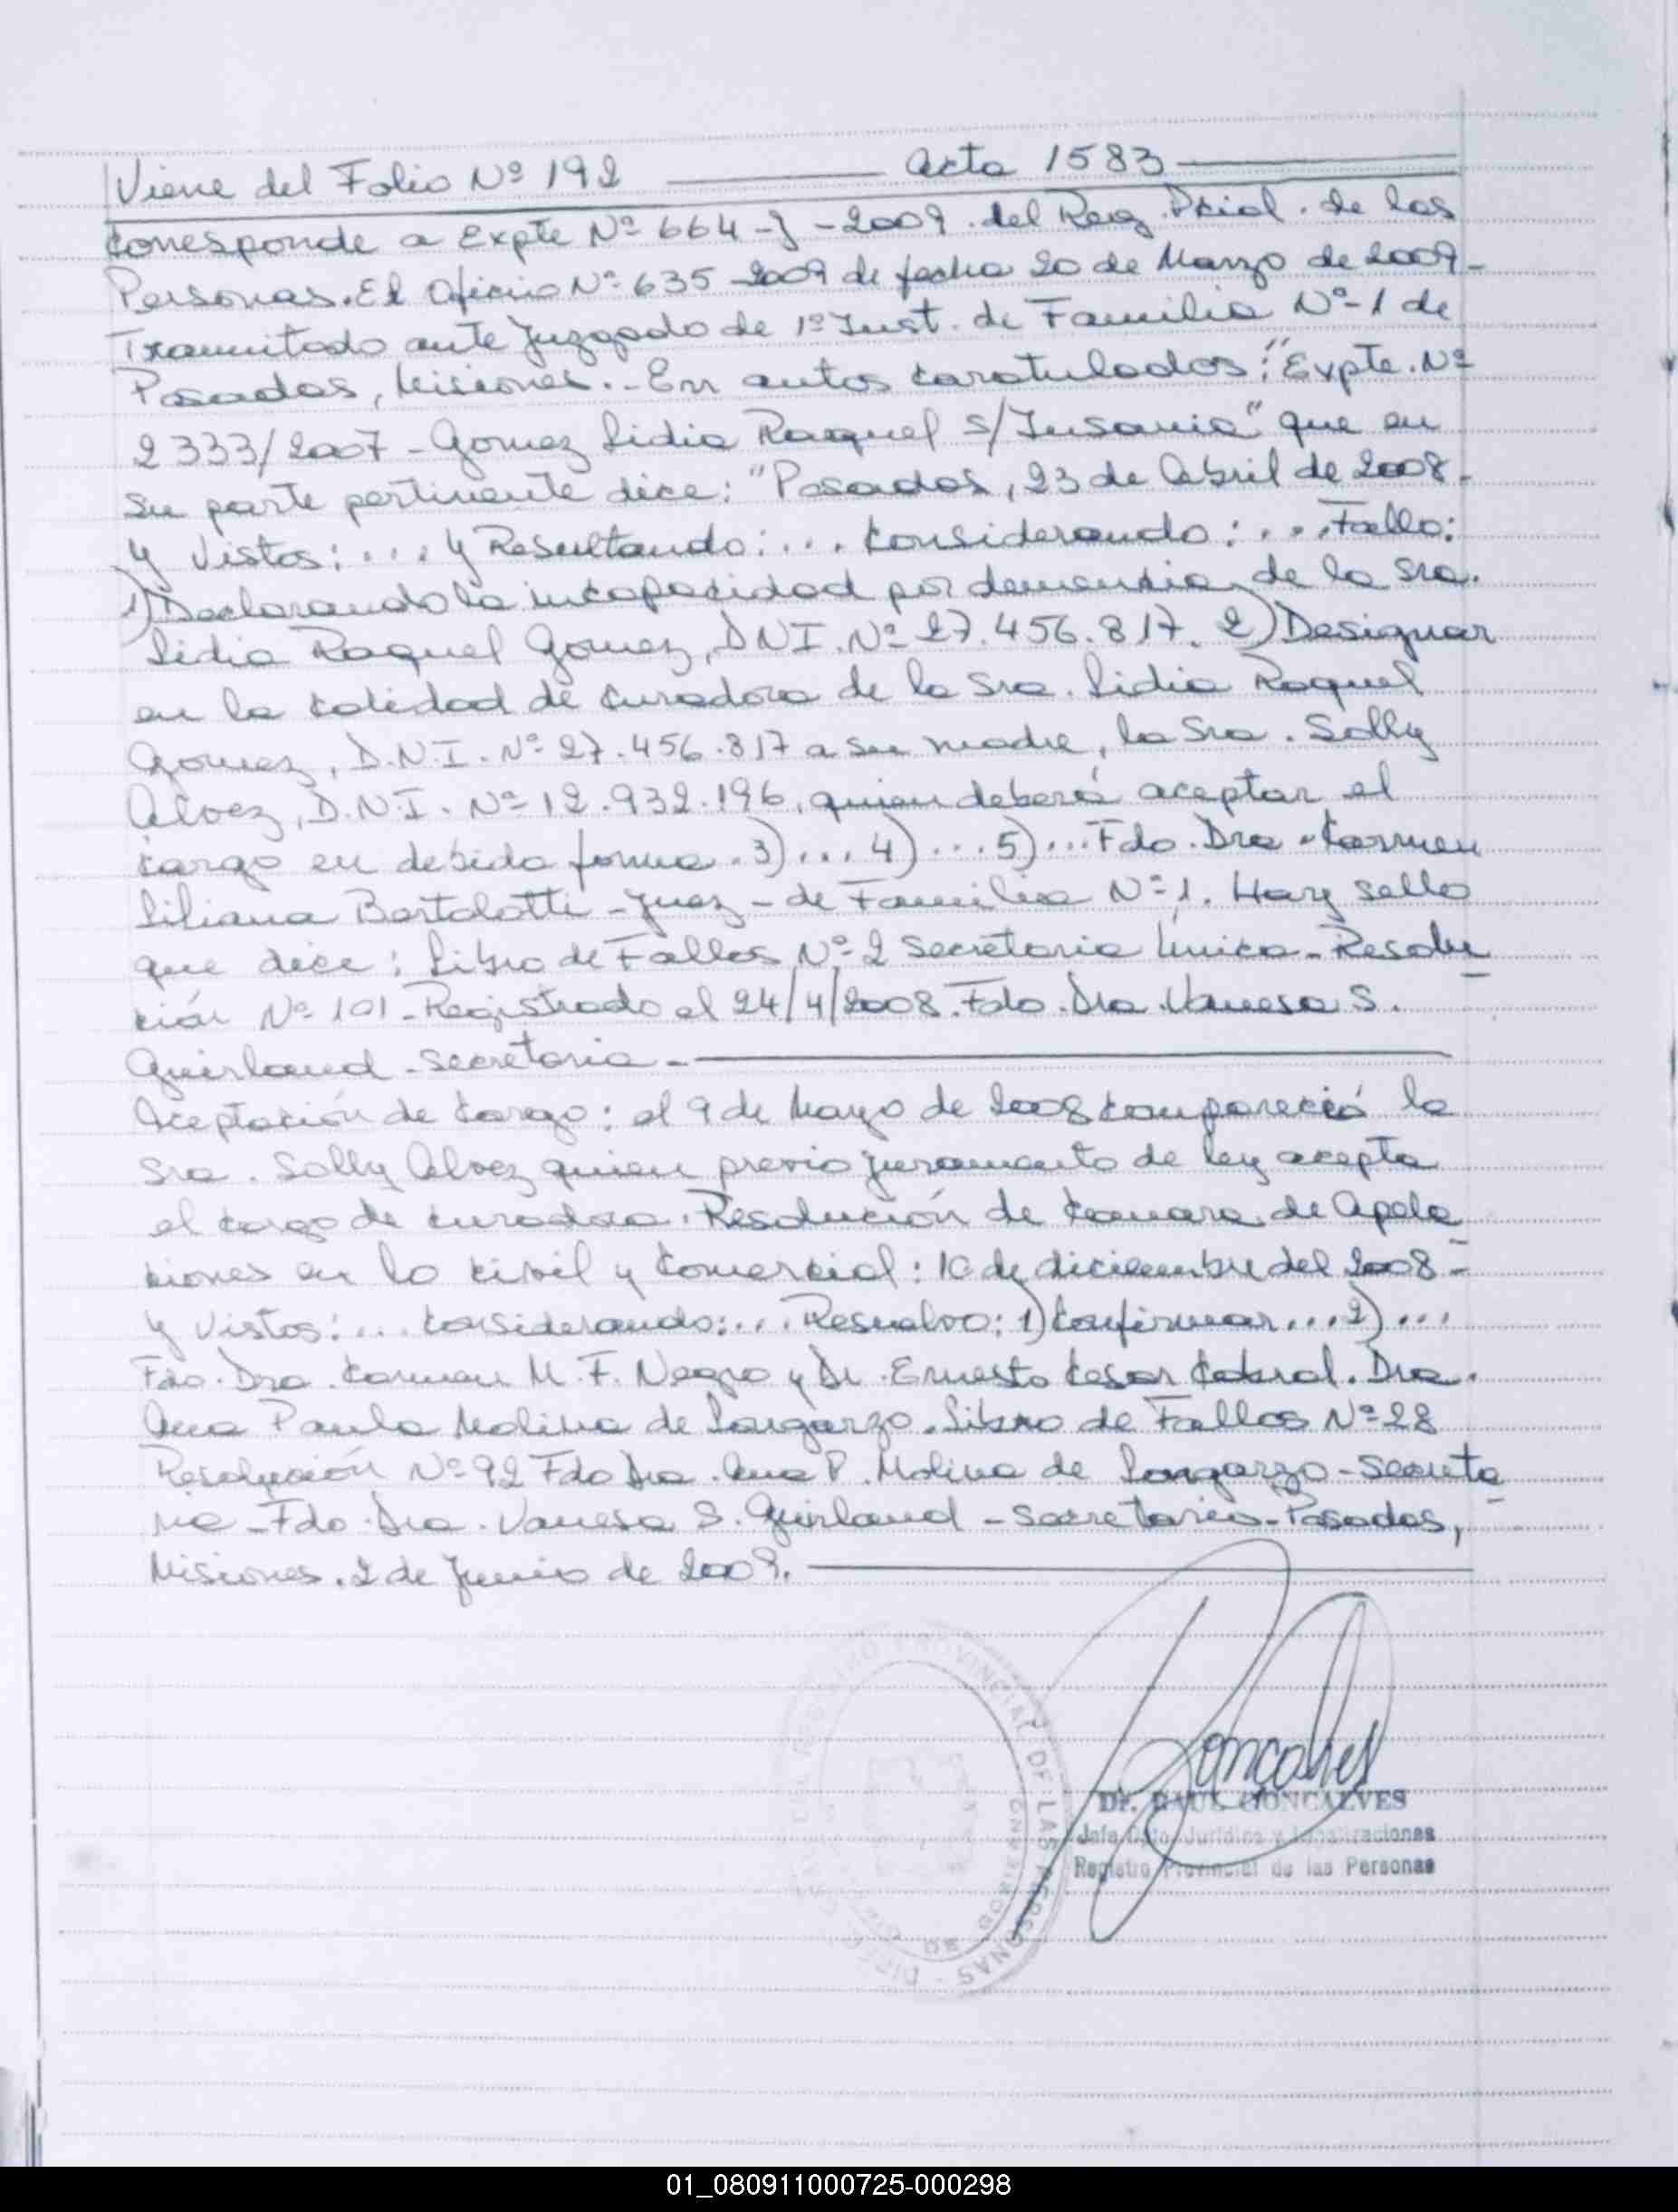 Viene del Folio Nº 192 ——— Acta 1583 ———
Corresponde a Expte Nº 664-J-2009. del Reg. Pcial. de las
Personas. El Oficio Nº 635-2009 de fecha 20 de Marzo de 2009-
Tramitado ante Juzgado de 1º Inst. de Familia Nº-1 de
Posadas, Misiones.- En autos caratulados: "Expte. Nº
2333/2007 - Gomez Lidia Raquel s/Insania" que en
su parte pertinente dice: "Posadas, 23 de Abril de 2008.
Y Vistos: ... Y Resultando: ... Considerando: ... Fallo:
1) Declarando la incapacidad por demencia, de la Sra.
Lidia Raquel Gomez, DNI. Nº 27.456.817. 2) Designar
en la calidad de curadora de la Sra. Lidia Raquel
Gomez, D.N.I. Nº 27.456.817 a su madre, la Sra. Solly
Alvez, D.N.I. Nº 12.932.196, quien deberá aceptar el
cargo en debida forma. 3)... 4)... 5)... Fdo. Dra. Carmen
Liliana Bartolotti - Juez - de Familia Nº 1. Hay sello
que dice: Libro de Fallos Nº 2 Secretaria Unica - Resolu
ción Nº 101 - Registrado el 24/4/2008. Fdo. Dra. Vanesa S.
Guirland - Secretaria - ———
Aceptación de Cargo: el 9 de Mayo de 2008 compareció la
Sra. Solly Alvez quien previo juramento de ley acepta
el cargo de curadora. Resolución de Camara de Apela
ciones en lo Civil y Comercial: 10 de diciembre del 2008-
Y Vistos: ... Considerando: ... Resuelvo: 1) Confirmar ... 2) ...
Fdo. Dra. Carmen M. F. Negro y Dr. Ernesto Cesar Cabral. Dra.
Ana Paula Molina de Longarzo. Libro de Fallos Nº 28
Resolución Nº 92 Fdo Dra. Ana P. Molina de Longarzo - Secreta
ria - Fdo. Dra. Vanesa S. Guirland - Secretaria - Posadas,
Misiones. 2 de Junio de 2009. ———
REGISTRO PROVINCIAL DE LAS PERSONAS
DE GOBIERNO
Goncalves
Dr. RAUL GONCALVES
Jefe Dpto. Jurídico y
Registro Provincial de las Personas
01_080911000725-000298